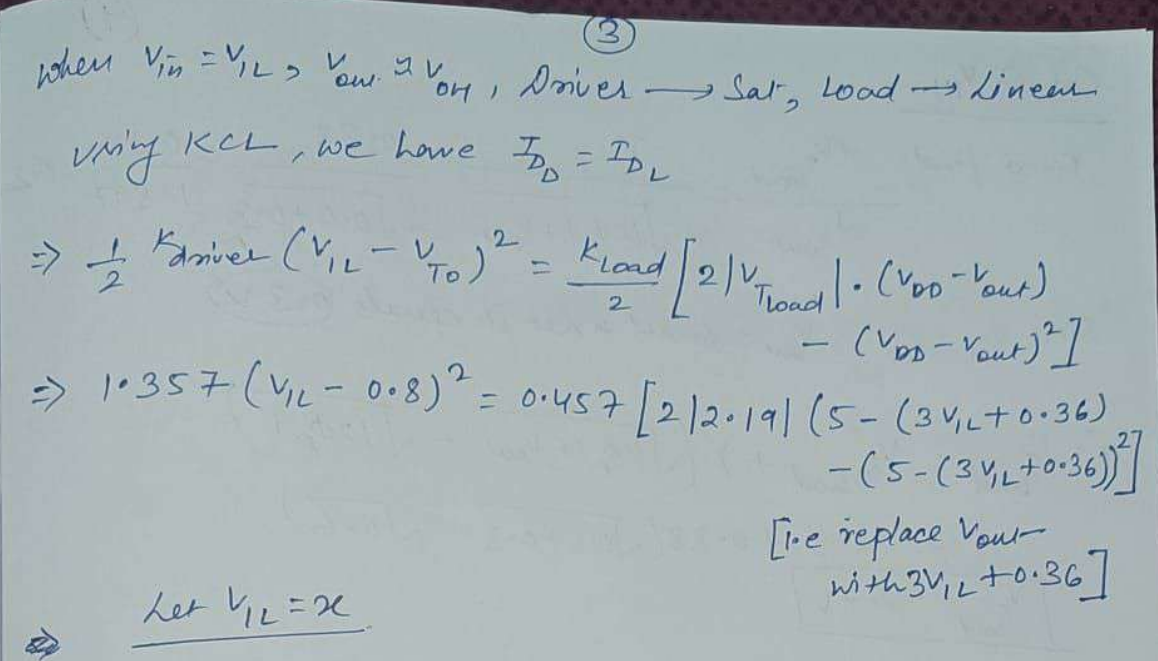 3
when Vin = VIL, Vout ≈ VOH, Driver → Sat, Load → Linear
using KCL, we have IDD = IDL
⇒ 1/2 Kdriver (VIL - VT0)² = KLoad/2 [2|VTLoad| . (VDD - Vout)
- (VDD - Vout)²]
⇒ 1.357 (VIL - 0.8)² = 0.457 [2|2.19| (5 - (3VIL + 0.36)
- (5 - (3VIL + 0.36))²]
[i.e replace Vout
with 3VIL + 0.36]
Let VIL = x
⇒